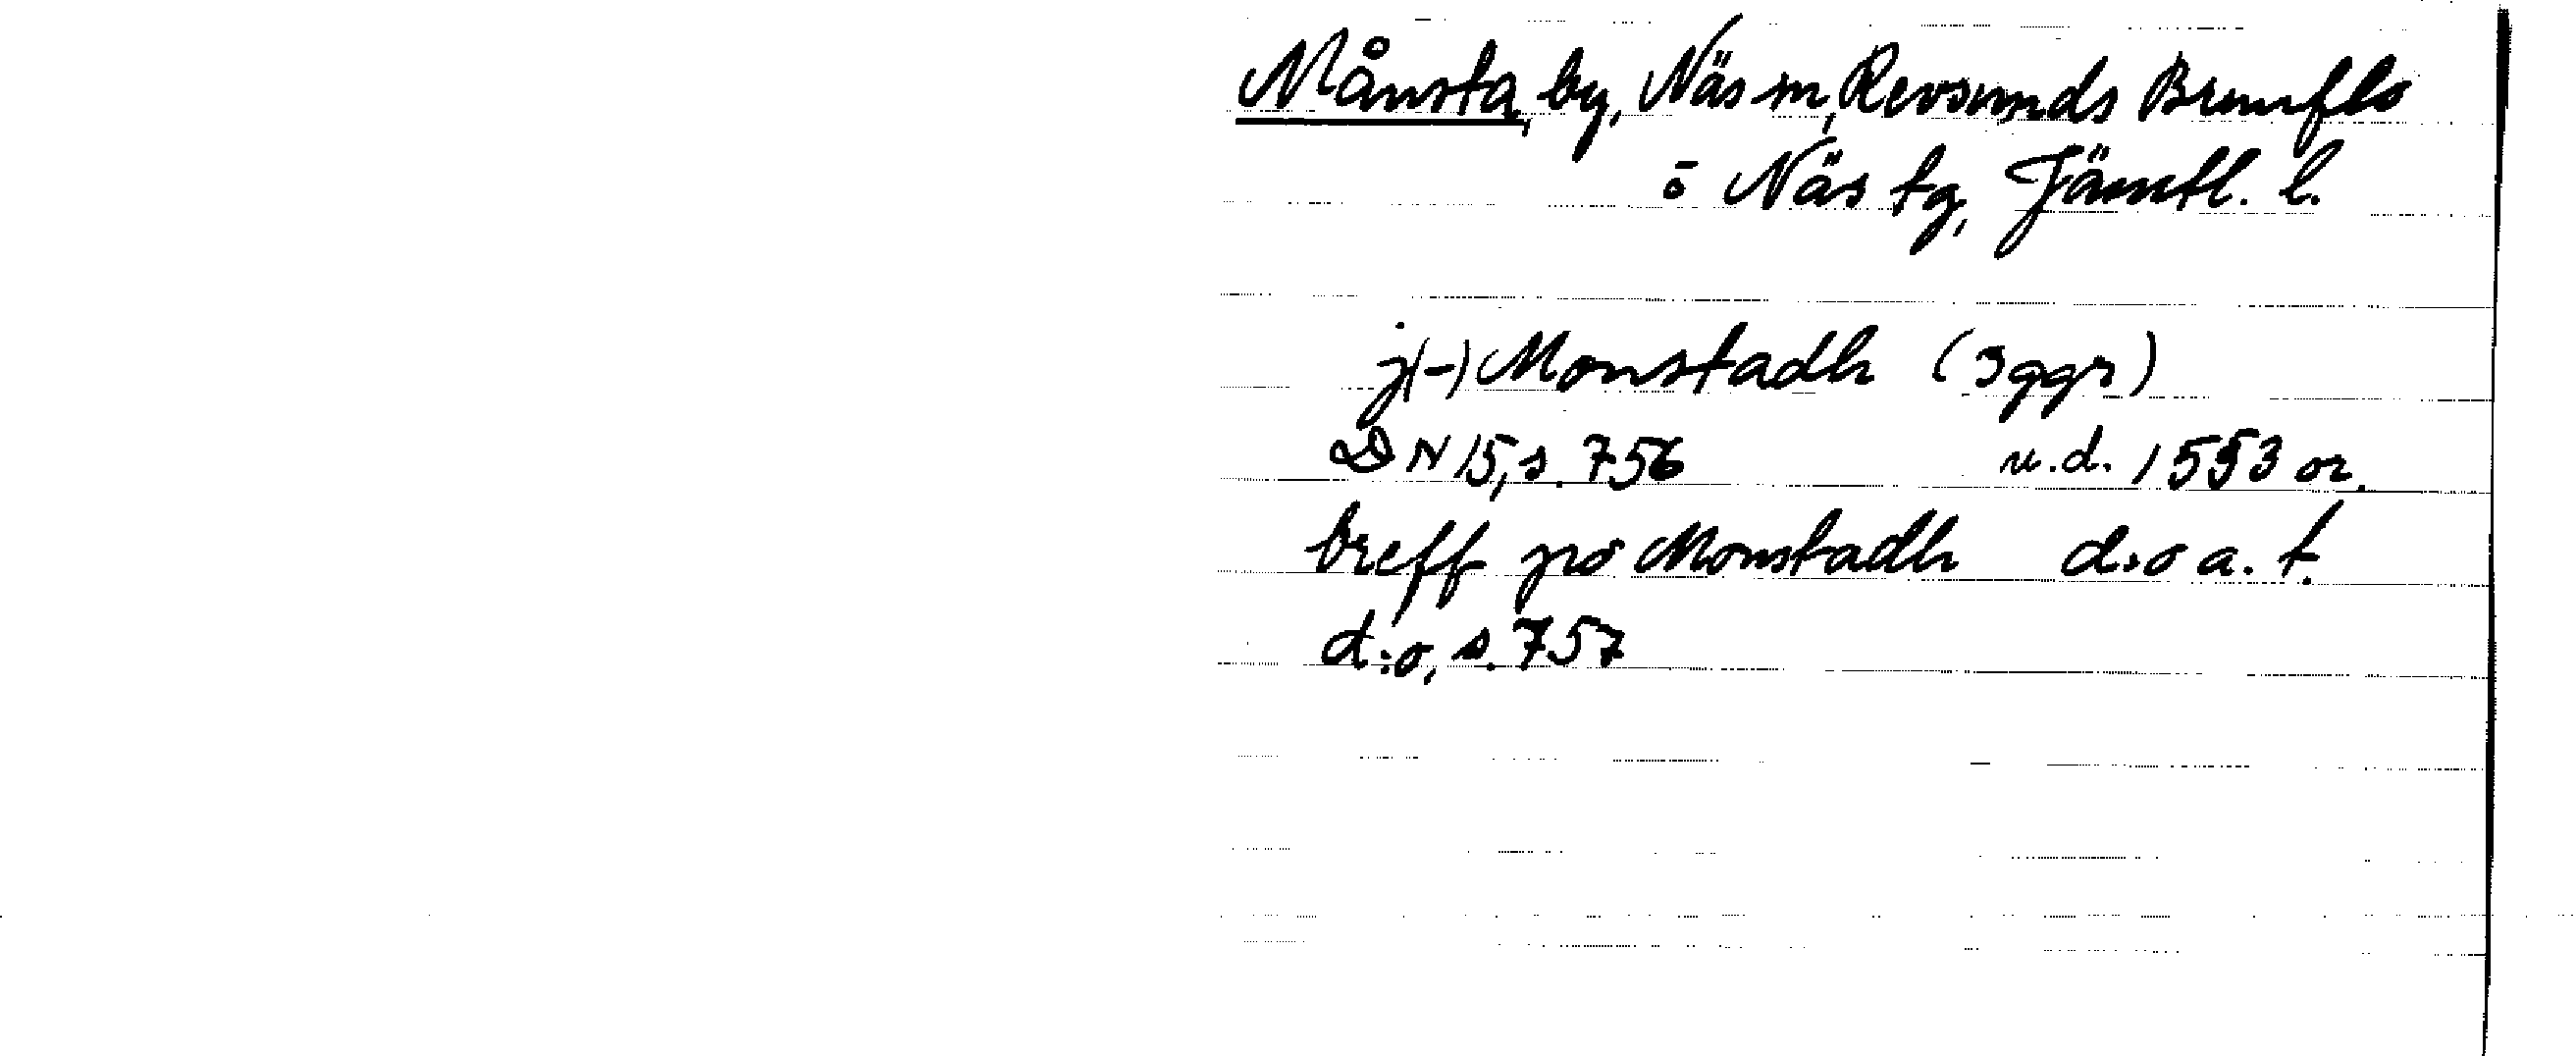 Månsta, by, Näs sn, Revsunds Brunflo
o Näs tg, Jämtl. l.
j(-) Monstadh (3ggr)
DN 15, s. 756 u.d. 1553 or.
breff po Monstadh d:o a. t.
d:o, s. 757